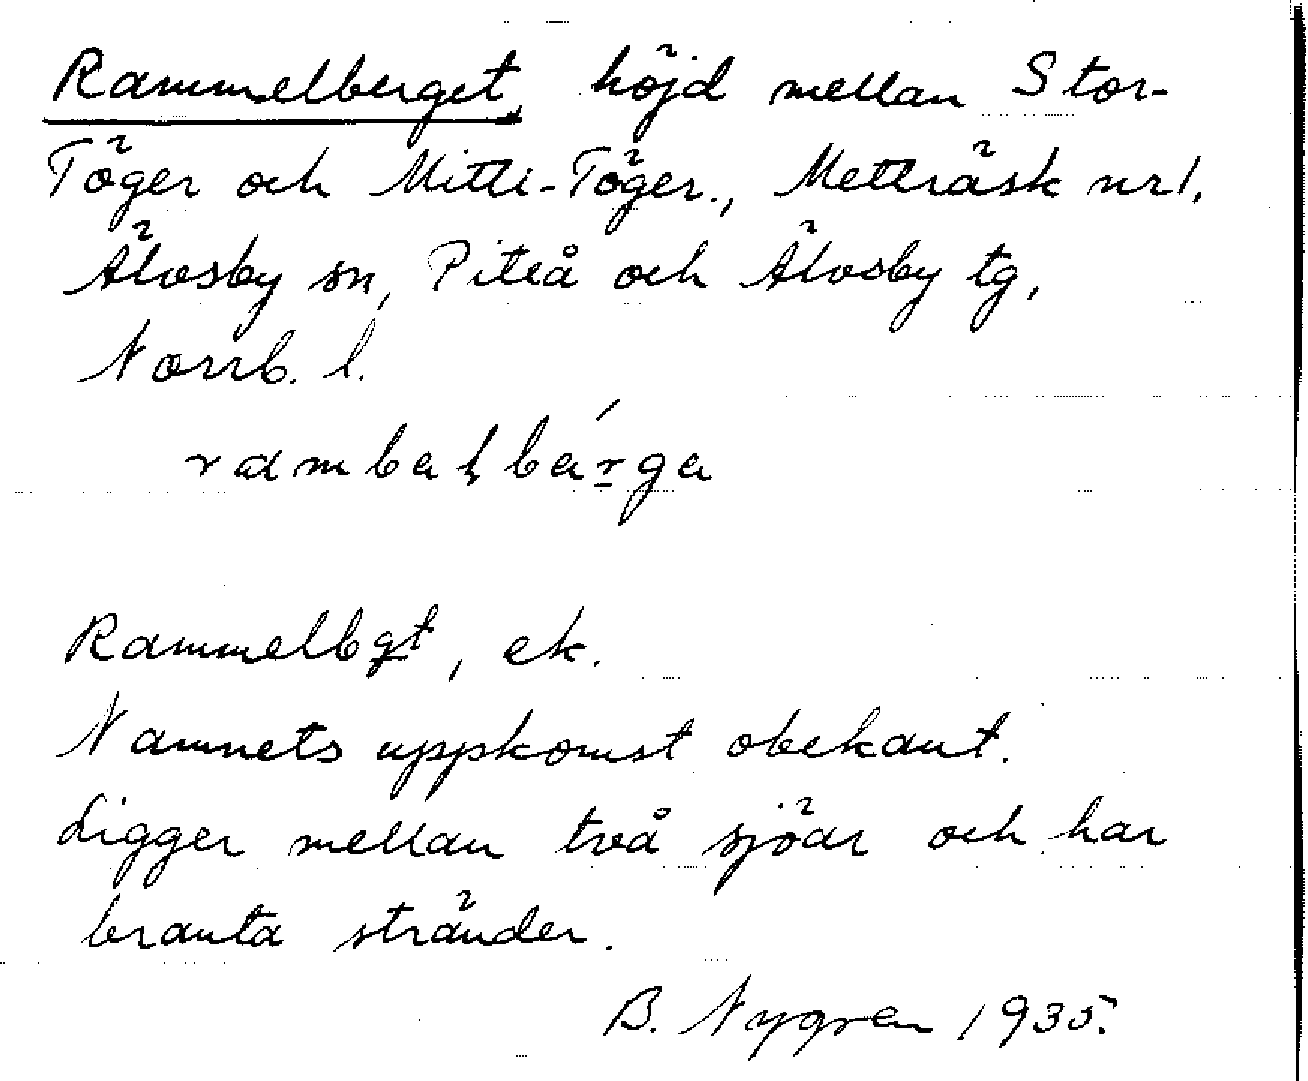 Rammelberget, höjd mellan Stor-
Töger och Mitti-Töger., Metträsk nr 1.
Älvsby sn, Piteå och Älvsby tg,
Norrb. l.
rambaḷbárga
Rammelbgt, ek.
Namnets uppkomst obekant.
Ligger mellan två sjöar och har
branta stränder.
B. Nygren 1935.